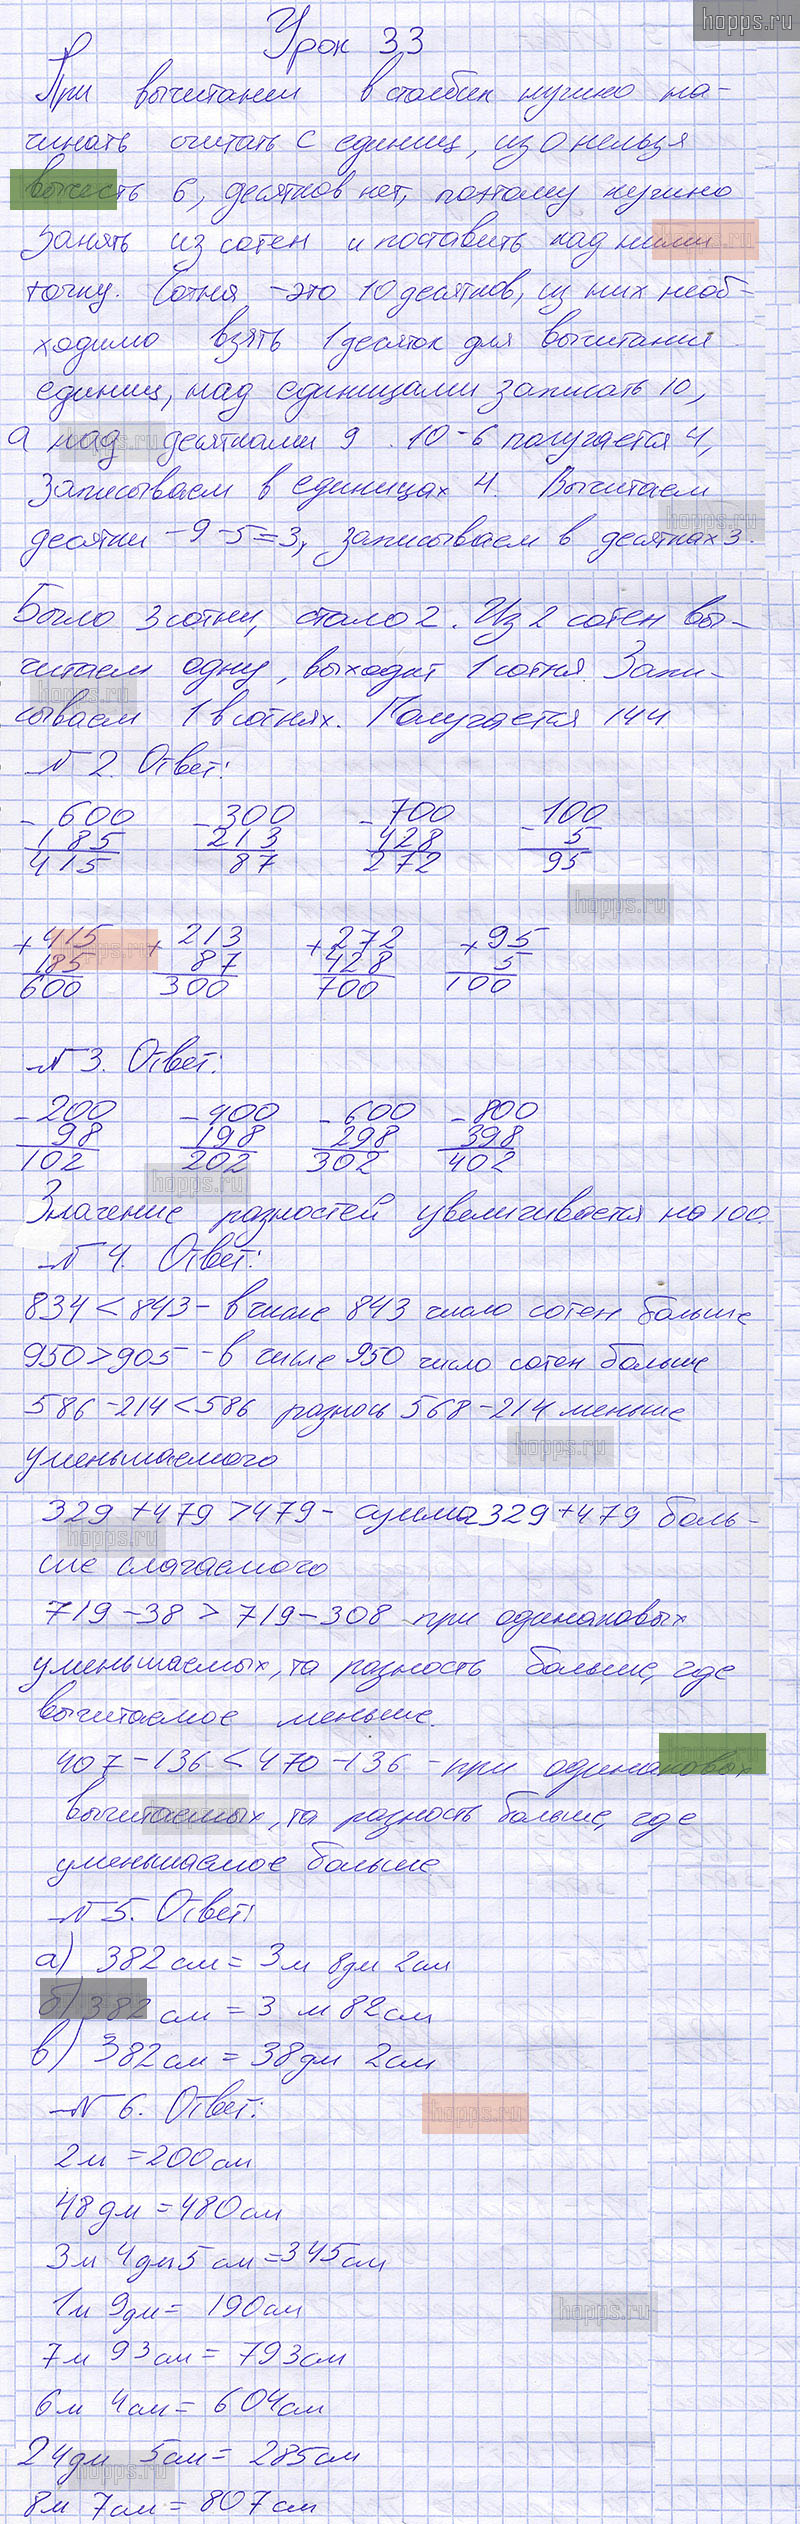 hopps.ru
Урок 33
При вычитании в столбик нужно на-
чинать считать с единиц, из 0 нельзя
вычесть 6, десятков нет, поэтому нужно
занять из сотен и поставить над ними
точку. Сотня - это 10 десятков, из них необ-
ходимо взять 1 десяток для вычитания
единиц, над единицами записать 10,
а над десятками 9. 10-6 получается 4,
Записываем в единицах 4. Вычитаем
десятки - 9-5=3, записываем в десятках 3.
Было 3 сотни, стало 2. Из 2 сотен вы-
читаем одну, выходит 1 сотня. Запи-
сываем 1 в сотнях. Получается 144.
№ 2. Ответ:
- 600 - 300 - 700 - 100
185 213 428 5
415 87 272 95
+ 415 + 213 + 272 + 95
185 87 428 5
600 300 700 100
№ 3. Ответ:
- 200 - 400 - 600 - 800
98 198 298 398
102 202 302 402
Значение разностей увеличивается на 100.
№ 4. Ответ:
834 < 843 - в числе 843 число сотен больше
950 > 905 - в числе 950 число сотен больше
586 - 214 < 586 разнось 568 - 214 меньше
уменьшаемого
329 + 479 > 479 - сумма 329 + 479 боль-
ше слагаемого
719 - 38 > 719 - 308 при одинаковых
уменьшаемых, та разность больше, где
вычитаемое меньше.
407 - 136 < 470 - 136 - при одинаковых
вычитаемых, та разность больше, где
уменьшаемое больше
№ 5. Ответ:
а) 382 см = 3 м 8 дм 2 см
б) 382 см = 3 м 82 см
в) 382 см = 38 дм 2 см
№ 6. Ответ:
2 м = 200 см
48 дм = 480 см
3 м 4 дм 5 см = 345 см
1 м 9 дм = 190 см
7 м 93 см = 793 см
6 м 4 см = 604 см
24 дм 5 см = 285 см
8 м 7 см = 807 см